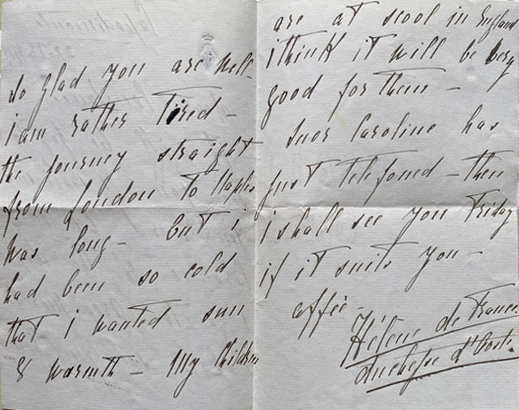 so glad you are well -
i am rather tired -
the journey straight
from London to Naples
was long - but i
had been so cold
that i wanted sun
& warmth - My children
are at scool in England
i think it will be very
good for them -
Suor Caroline has
just telefoned - then
i shall see you Friday
if it suits you -
affée -
Hélène de France
duchesse d'Aoste.